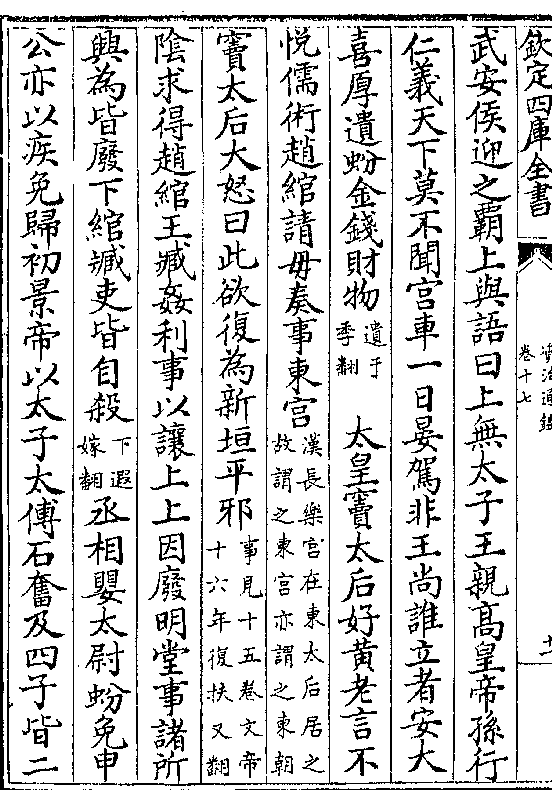 欽定四庫全書
資治通鑑
卷十七
十一
武安侯迎之霸上與語曰上無太子王親髙皇帝孫行
仁義天下莫不聞宫車一日晏駕非王尚誰立者安大
喜厚遺蚡金錢財物遺于季翻太皇竇太后好黄老言不
悦儒術趙綰請毋奏事東宫漢長樂宫在東太后居之故謂之東宫亦謂之東朝
竇太后大怒曰此欲復為新垣平邪事見十五卷文帝十六年復扶又翻
隂求得趙綰王臧姦利事以讓上上因廢明堂事諸所
興為皆廢下綰臧吏皆自殺下遐嫁翻丞相嬰太尉蚡免申
公亦以疾免歸初景帝以太子太傅石奮及四子皆二